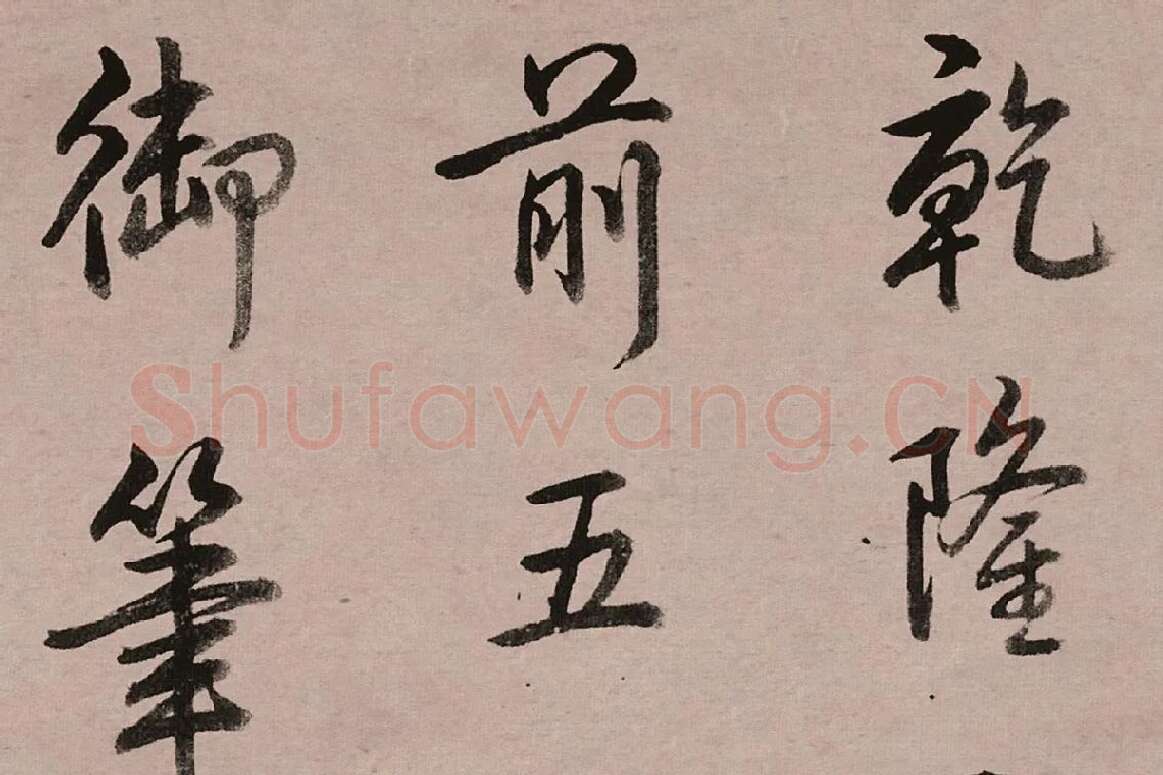 乾隆
前五
御筆
Shufawang.CN